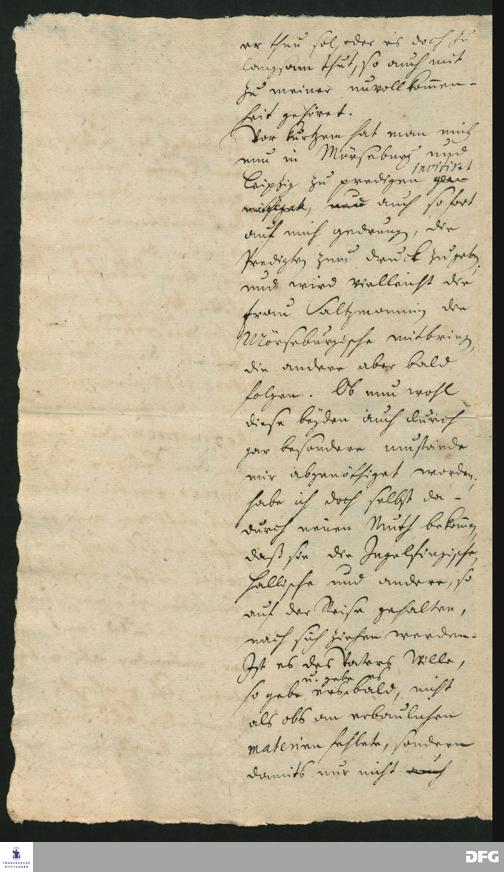 er thun sol, oder es doch zu
langsam thut, so auch mit
zu meiner unvollkom̄en-
heit gehöret.
Vor kurtzem hat man mich
nun in Mörseburg und
Leipzig zu predigen invitiret
auch so fort
auf mich gedrung, die
Predigten zum druck zu geben,
und wird vielleicht die
Frau Saltzmannin die
Mörseburgische mitbring,
die andere aber bald
folgen. Ob nun wohl
diese beyden auch durch
gar besondere umstände
mir abgenöthiget worden,
habe ich doch selbst da-
durch neuen Muth bekom̄en,
daß sie die Ingelfingische,
Hallische und andere, so
auf der Reise gehalten,
nach sich ziehen werden.
Ist es des Vaters Wille,
u. gebe es
so gebe er es bald, nicht
als obs an erbaulichen
materien fehlete, sondern
damits nur nicht auch
FRANCKESCHE STIFTUNGEN
DFG